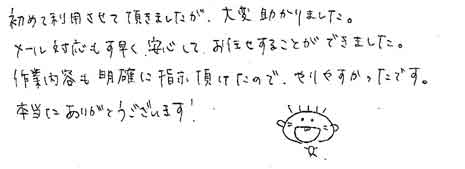 初めて利用させて頂きましたが、大変助かりました。
メール対応も素早く、安心して、お任せすることができました。
作業内容も明確に指示頂けたので、やりやすかったです。
本当にありがとうございます!